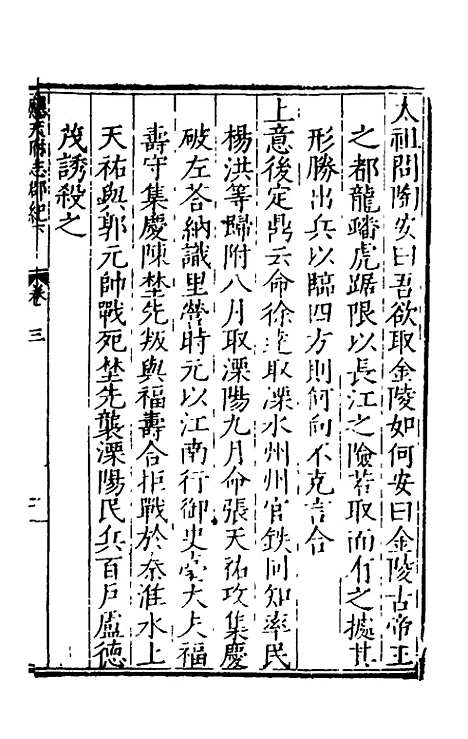 太祖問陶安曰吾欲取金陵如何安曰金陵古帝王
之都龍蟠虎踞限以長江之險若取而有之據其
形勝出兵以臨四方則何向不克言合
上意後定鼎云命徐達取溧水州州官鉄同知率民
楊洪等歸附八月取溧陽九月命張天祐攻集慶
破左荅納識里營時元以江南行御史臺大夫福
壽守集慶陳埜先叛與福壽合拒戰於秦淮水上
天祐與郭元帥戰死埜先襲溧陽民兵百戶盧德
茂誘殺之
應天府志郡紀下 卷三